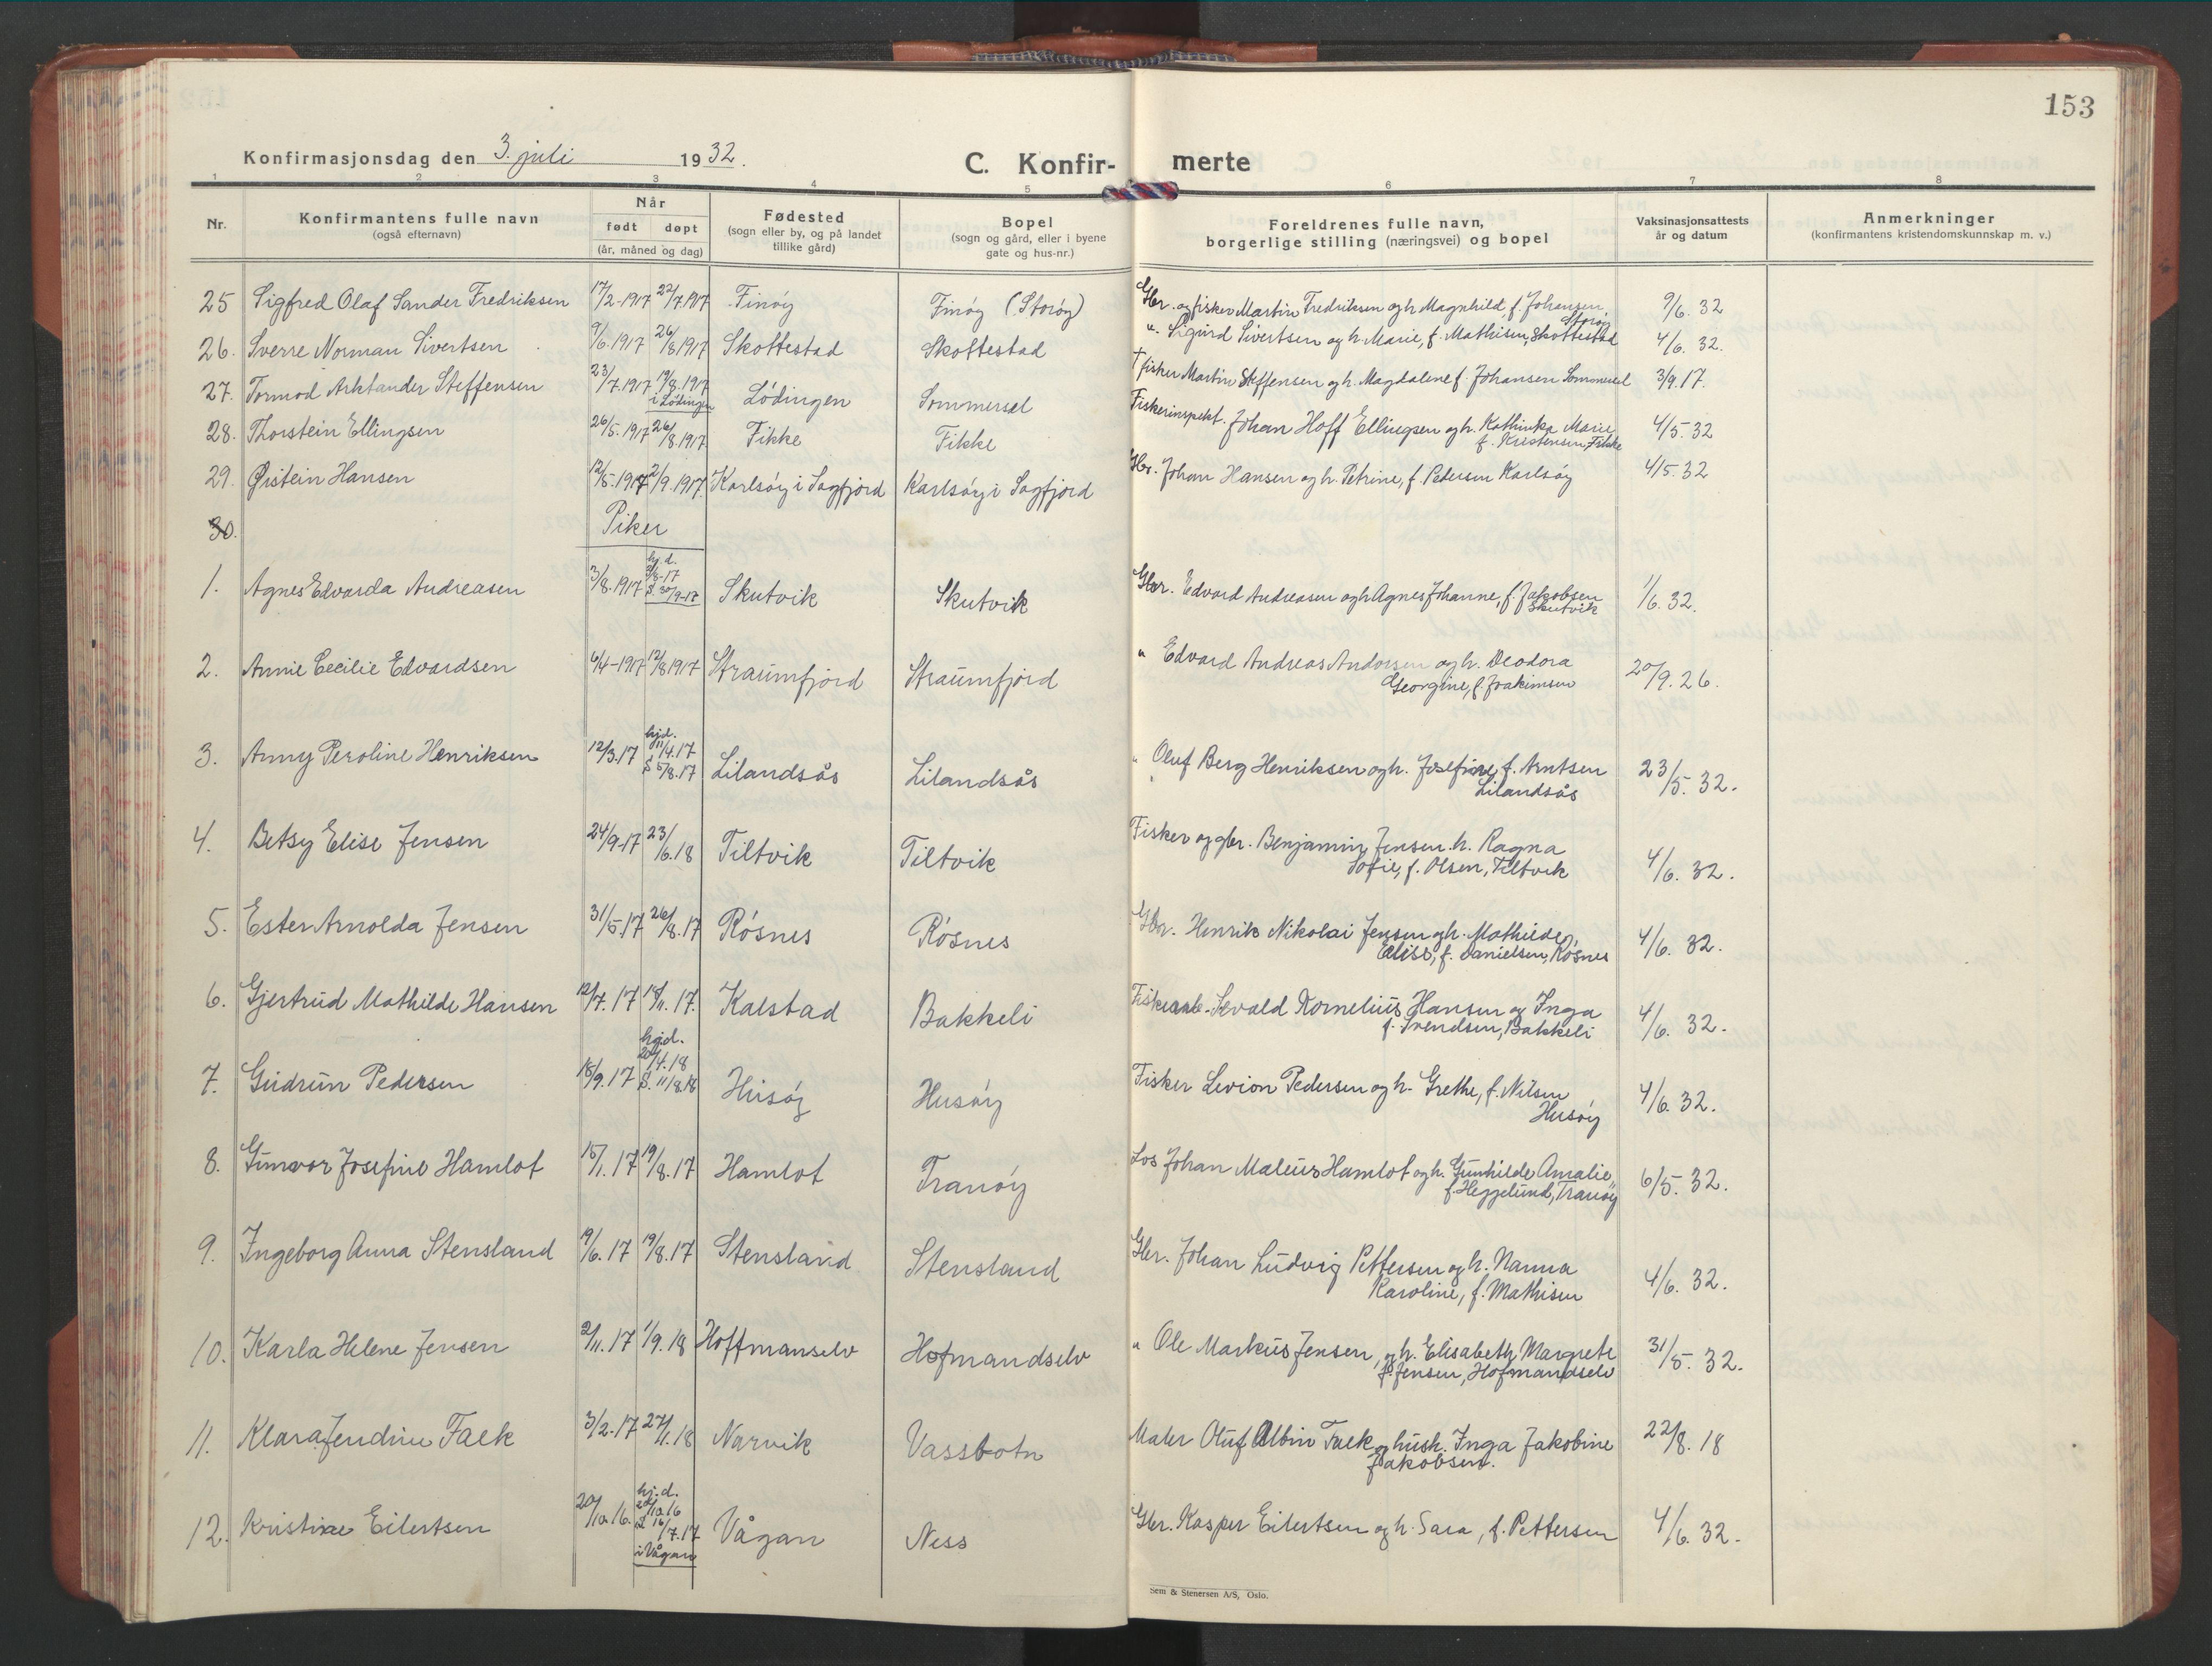 153
Konfirmasjonsdag den 3. juli 1932.
C. Konfir- merte
1 2 3 4 5 6 7 8
Nr.
Konfirmantens fulle navn
(også efternavn)
Når
født døpt
(år, måned og dag)
Fødested
(sogn eller by, og på landet
tillike gård)
Bopel
(sogn og gård, eller i byene
gate og hus-nr.)
Foreldrenes fulle navn,
borgerlige stilling (næringsvei) og bopel
Vaksinasjonsattests
år og datum
Anmerkninger
(konfirmantens kristendomskunnskap m. v.)
25 Sigfred Olaf Sander Fredriksen 17/2-1917 22/7.1917 Finöy Finöy (Storöy) Gbr. og fisker Martin Fredriksen og h. Magnhild f. Johansen, 9/6.32
Storöy
26. Sverre Norman Sivertsen 9/6.1917 26/8 1917 Skottestad Skottestad " Sigurd Sivertsen og h. Marie, f. Mathisen, Skottestad 4/6. 32.
27. Tormod Arktander Steffensen 23/7.1917 19/8.1917 Lödingen Sommersel † fisker Martin Steffensen og h. Magdalene f. Johansen Sommersel 3/9.17.
i Lödingen
28. Thorstein Ellingsen 26/5.1917 26/8.1917 Fikke Fikke Fiskerinspekt. Johan Hoff Ellingsen og h. Kathinka Marie 4/5.32
f. Kristensen, Fikke
29. Øistein Hansen 12/5.1917 2/9.1917. Karlsöy i Sagfjord Karlsöy i Sagfjord Gbr. Johan Hansen og h. Petrine, f. Pedersen Karlsöy 4/5.32
30.
Piker
hj.d.
1. Agnes Edvarda Andreasen 3/8.1917 3/8-17 Skutvik Skutvik Gbr. Edvard Andreasen og h Agnes Johanne, f. Jakobsen 1/6.32.
S. 30/9-17 Skutvik
2. Annie Cecilie Edvardsen 6/4-1917 12/8 1917 Straumfjord Straumfjord " Edvard Andreas Andersen og h. Deodora 20/9.26.
Georgine, f. Joakimsen
hjd.
3. Anny Peroline Henriksen 12/3.17 11/4.17 Lilandsås Lilandsås " Oluf Berg Henriksen og h. Josefine, f. Arntsen 23/5.32.
S 5/8.17 Lilandsås
4. Betsy Elise Jensen 24/9-17 23/6.18 Tiltvik Tiltvik Fisker og gbr. Benjamin Jensen. h. Ragna 4/6. 32.
Sofie, f. Olsen, Tiltvik
5. Ester Arnolda Jensen 31/5.17 26/8.17 Rösnes Rösnes Gbr. Henrik Nikolai Jensen og h. Mathilde 4/6. 32.
Elise, f. Danielsen, Rösnes
6. Gjertrud Mathilde Hansen 12/7.17 18/11.17. Kalstad Bakkeli Fiskerarb. Sevald Kornelius Hansen og Inga 4/6. 32.
f. Svendsen, Bakkeli
hjd.
7. Gudrun Pedersen 18/9.17 20/4.18 Husöy Husöy Fisker Levion Pedersen og h. Grethe, f. Nilsen 4/6.32.
S. 11/8.18 Husöy
8. Gunvor Josefine Hamlot 15/1.17 19/8.17 Hamlot Tranöy Los Johan Maleus Hamlot og h. Gunhilde Amalie, 6/5.32.
f. Heggelund, Tranöy
9. Ingeborg Anna Stensland 19/6.17 19/8.17 Stensland Stensland Gbr. Johan Ludvig Pettersen og h. Nanna 4/6.32.
Karoline, f. Mathisen
10. Karla Helene Jensen 2/11.17 1/9.18 Hoffmanselv Hofmandselv " Ole Markus Jensen, og h. Elisabeth Margrete 31/5.32.
f. Jensen, Hofmandselv
11. Klara Jendine Falk 3/2.17 27/1.18 Narvik Vassbotn Maler Oluf Albin Falk og hush. Inga Jakobine 22/8.18
Jakobsen.
hj.d.
12. Kristine Eilertsen 20/10.16. 20/10.16 Vågan Ness Gbr. Kasper Eilertsen og h. Sara, f. Pettersen 4/6.32.
S 16/7.17
i Vågan
Sem & Stenersen A/S, Oslo.